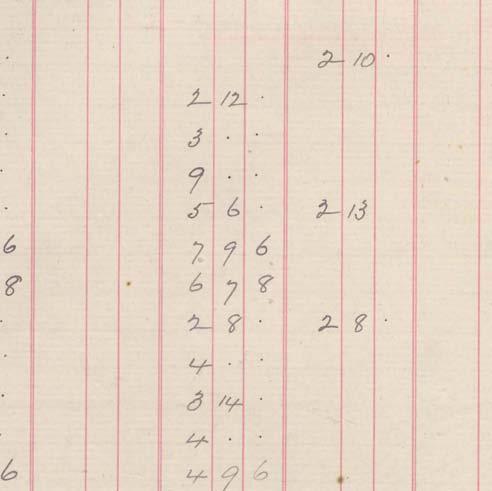 . 2 10 .
. 2 12 .
. 3 . .
. 9 . .
. 5 6 . 2 13
6 7 9 6
8 6 7 8
. 2 8 . 2 8 .
. 4 . .
. 3 14 .
. 4 . .
6 4 9 6